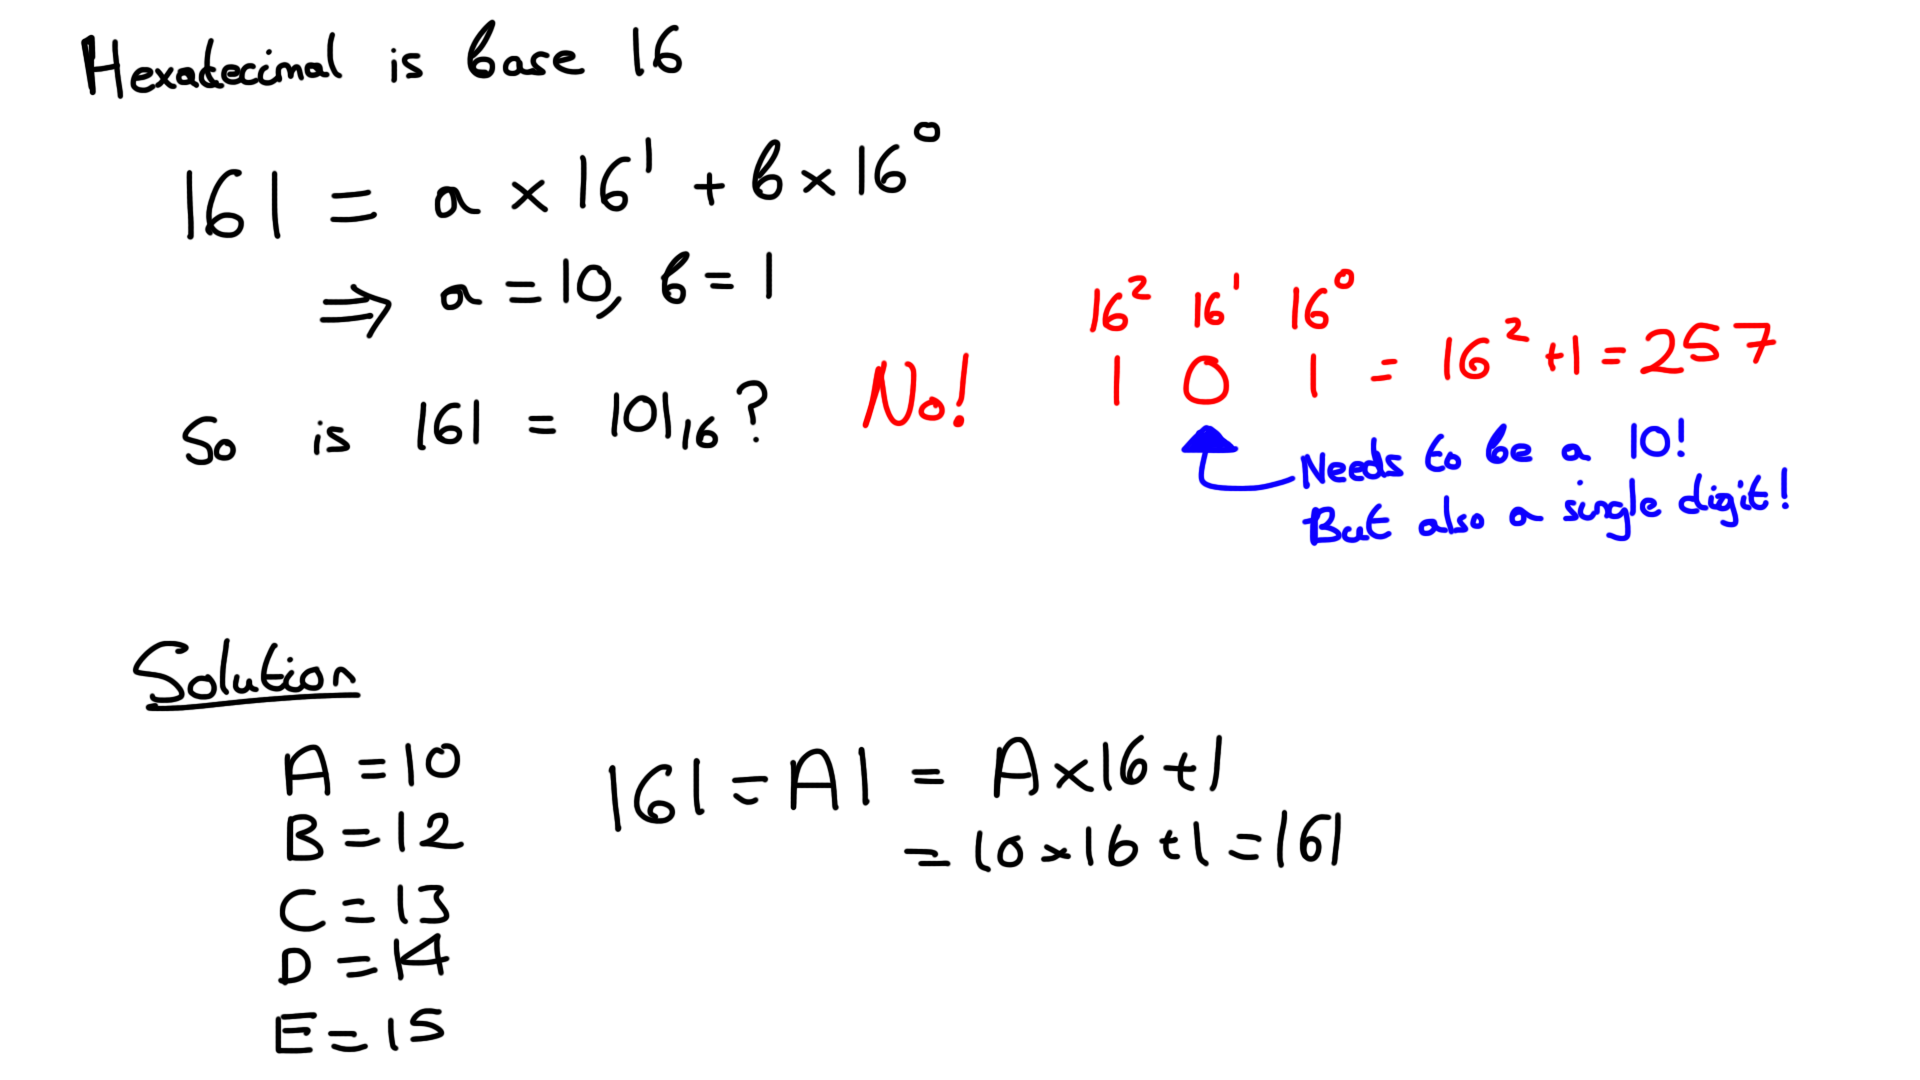 Hexadecimal is base 16
161 = a × 16¹ + b × 16⁰
⇒ a = 10, b = 1
So is 161 = 101₁₆ ?
No!
16² 16¹ 16⁰
1 0 1 = 16² + 1 = 257
Needs to be a 10!
But also a single digit!
Solution
A = 10
B = 12
C = 13
D = 14
E = 15
161 = A1 = A × 16 + 1
= 10 × 16 + 1 = 161